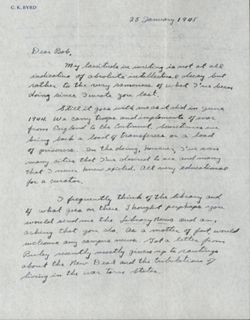 C. K. BYRD
25 January 1945
Dear Bob,
My tardiness in writing is not at all
indicative of absolute intellectual decay but
rather to the very sameness of what I've been
doing since I wrote you last.
Still it goes with me as it did in June
1944. We carry troops and implements of war
from England to the Continent. Sometimes we
bring back a load of transferees or a load
of prisoners. In the doing, however, I've seen
many cities that I've desired to see and many
that I never knew existed. All very educational
for a curator.
I frequently think of the library and
of what goes on there. Thought perhaps you
would send me the Library News and am
asking that you do. As a matter of fact would
welcome any campus news. Got a letter from
recently mostly given up to rantings
about the New Deal and the tribulations of
living in the war torn States.